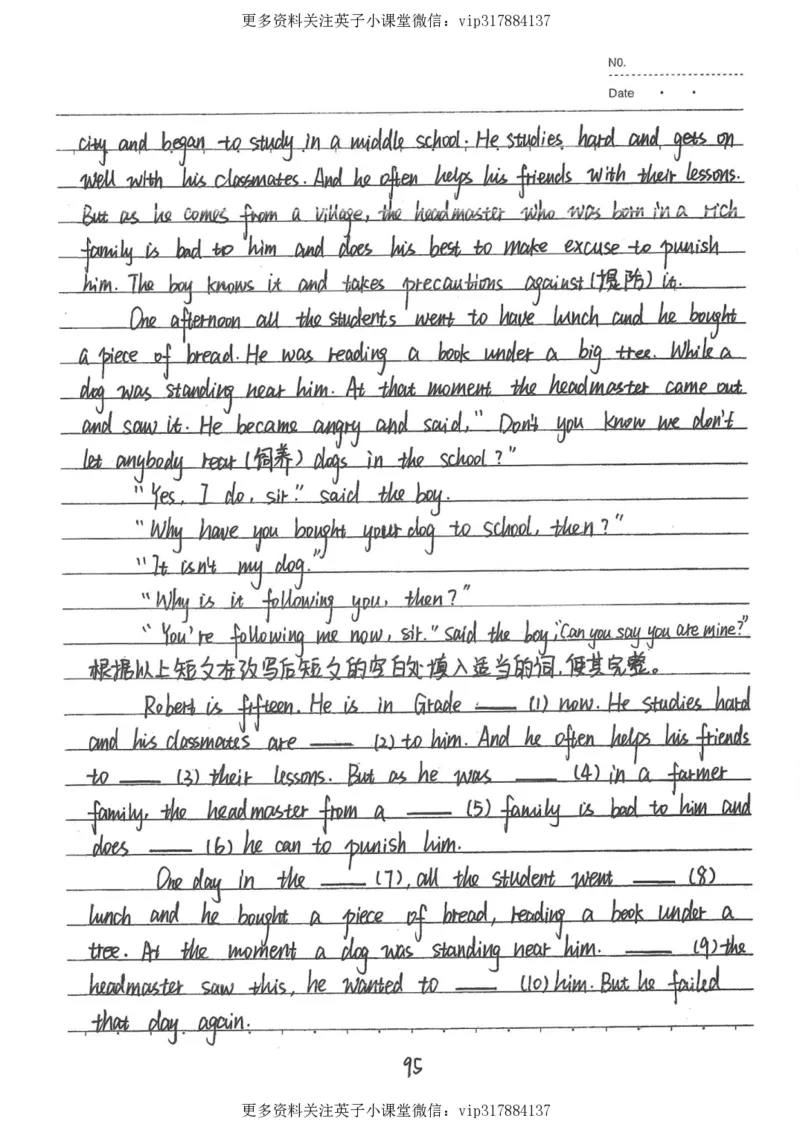 更多资料关注英子小课堂微信：vip317884137
NO.
Date
city and began to study in a middle school. He studies hard and gets on
well with his classmates. And he often helps his friends with their lessons.
But as he comes from a village, the headmaster who was born in a rich
family is bad to him and does his best to make excuse to punish
him. The boy knows it and takes precautions against (提防) it.
One afternoon all the students went to have lunch and he bought
a piece of bread. He was reading a book under a big tree. While a
dog was standing near him. At that moment the headmaster came out
and saw it. He became angry and said, "Don't you know we don't
let anybody rear (饲养) dogs in the school?"
"Yes, I do, sir." said the boy.
"Why have you bought your dog to school, then?"
"It isn't my dog."
"Why is it following you, then?"
"You're following me now, sir." said the boy, "Can you say you are mine?"
根据以上短文在改写后短文的空白处填入适当的词，使其完整。
Robert is fifteen. He is in Grade ____ (1) now. He studies hard
and his classmates are ____ (2) to him. And he often helps his friends
to ____ (3) their lessons. But as he was ____ (4) in a farmer
family, the headmaster from a ____ (5) family is bad to him and
does ____ (6) he can to punish him.
One day in the ____ (7), all the student went ____ (8)
lunch and he bought a piece of bread, reading a book under a
tree. At the moment a dog was standing near him. ____ (9) the
headmaster saw this, he wanted to ____ (10) him. But he failed
that day again.
95
更多资料关注英子小课堂微信：vip317884137